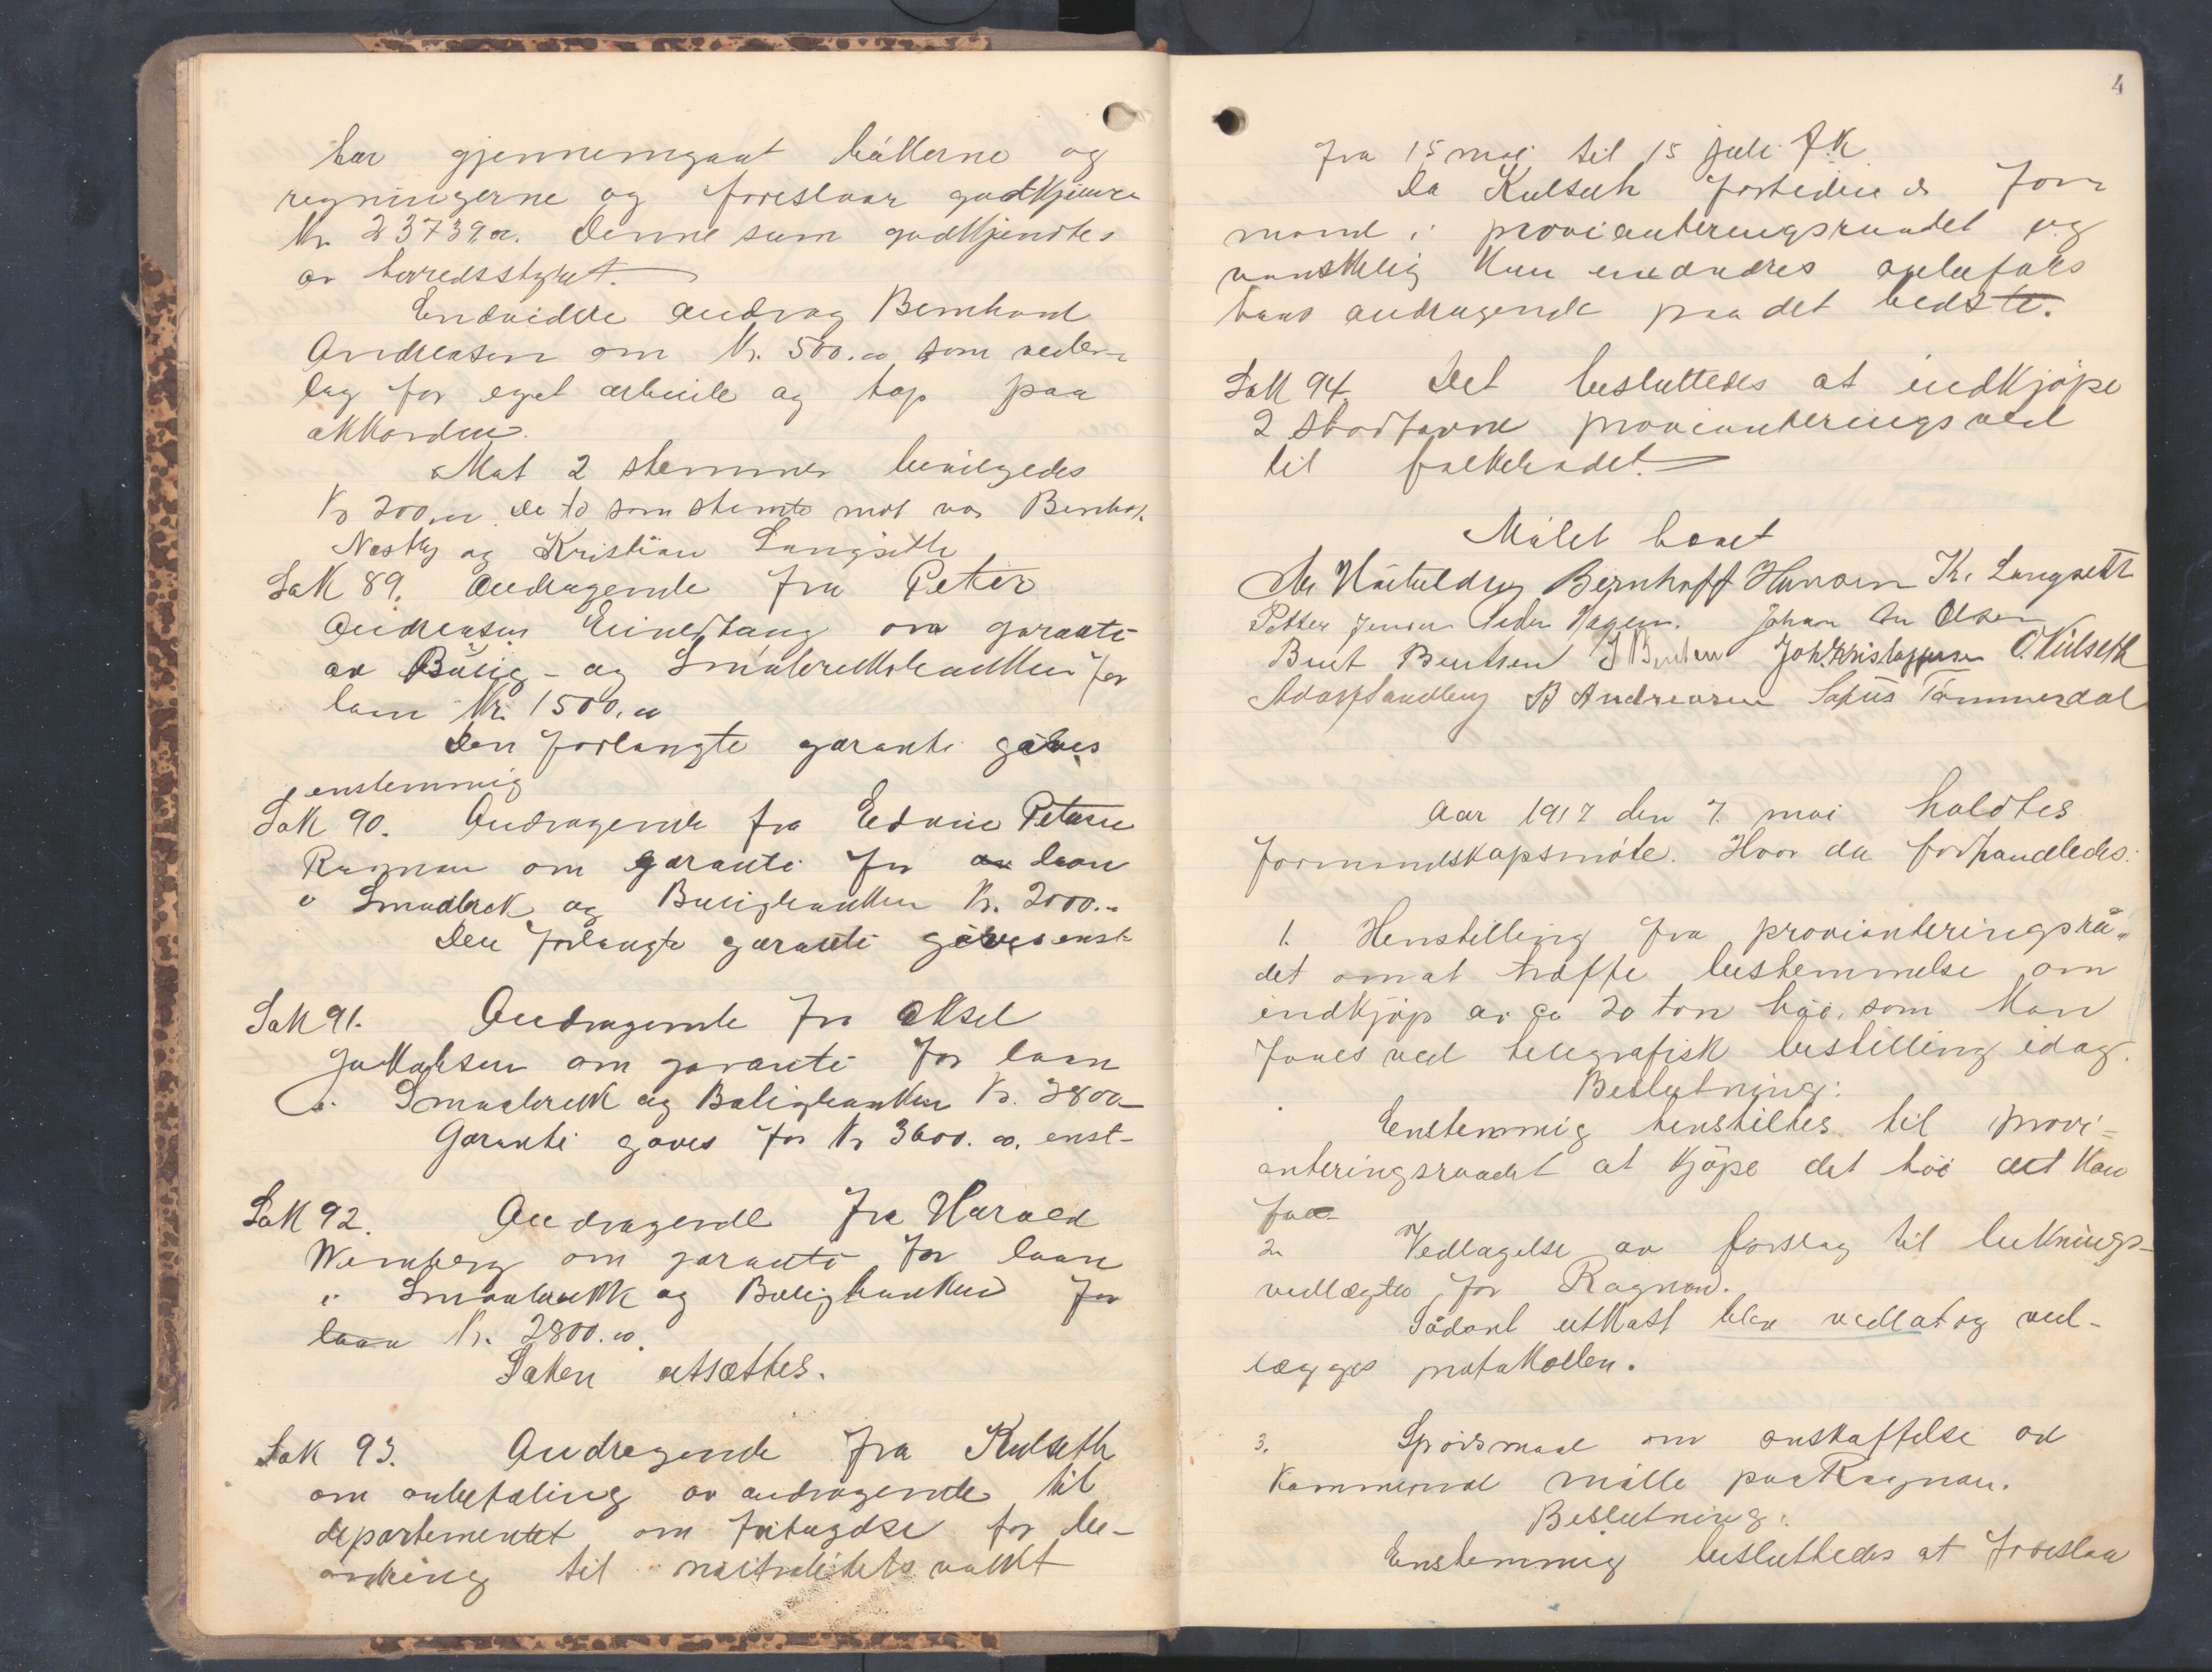 har gjennemgaat båkerne og
regningerne og foreslaar godkjendt
Kr. 23739.00. Denne sum godkjendtes
av herredsstyret.
Endvidere androg Bernhard
Andreasen om Kr. 500.00 som veder-
lag for eget arbeide og tap paa
akkorden.
Mot 2 stemmer bevilgedes
Kr 200.00. De to som stemte mot var Bernhof.
Næstby og Kristian Langseth
Sak 89. Andragende fra Peter
Andreasen om garanti
av Bolig- og Småbruksbanken for
laan Kr. 1500.00
Den forlangte garanti gaves
enstemmig
Sak 90. Andragende fra Edvin Petersen
Rognan om garanti for laan
i Smaabruk og Boligbanken Kr. 2000.-
Den forlangte garanti gaves enst-
Sak 91. Andragende fra Aksel
Jakobsen om garanti for laan
i Smaabruk og Boligbanken Kr. 3800-
Garanti gaves for Kr 3600.00. enst-
Sak 92. Andragende fra Harald
Wernberg om garanti for laan
i Smaabruk og Boligbanken for
laan Kr. 2800.00.
Saken utsættes.
Sak 93. Andragende fra Kulseth
om anbefaling av andragende til
departementet om fritagelse for be-
ordring til nøitralitetsvakt
4
fra 15 mai til 15 juli d.k.
Da Kulseth fortiden er for-
mand i provianteringsraadet og
vanskelig kan undværes anbefales
hans andragende paa det bedste.
Sak 94. Det besluttedes at indkjöpe
2 storfavne provianteringsved
til
Målet hævet
Bernhoff Hansen K. Langseth
Petter Jensen Peder Hagen. Johan An Olsen
Berit Bentsen J Bentsen Joh. Kristoffersen O. Kulseth
Adolf Sandberg B Andreasen Sofus Tømmerdal
Aar 1917 den 7. mai holdtes
formandskapsmöte. Hvor da forhandledes:
1. Henstilling fra provianteringsrå-
det om at træffe bestemmelse om
indkjöp av ca 20 ton höi, som kan
faaes ved telegrafisk bestilling idag.
Beslutning:
Enstemmig henstilles til provi-
anteringsraadet at kjöpe det höi det kan
faa-
2. Vedtagelse av forslag til luknings-
vedtægter for Rognan.
Sådant utkast blev vedtat og ved-
lægges protokollen.
3. Spörsmaal om anskaffelse av
kommunal mölle paa Rognan.
Beslutning:
Enstemmig besluttedes at foreslaa